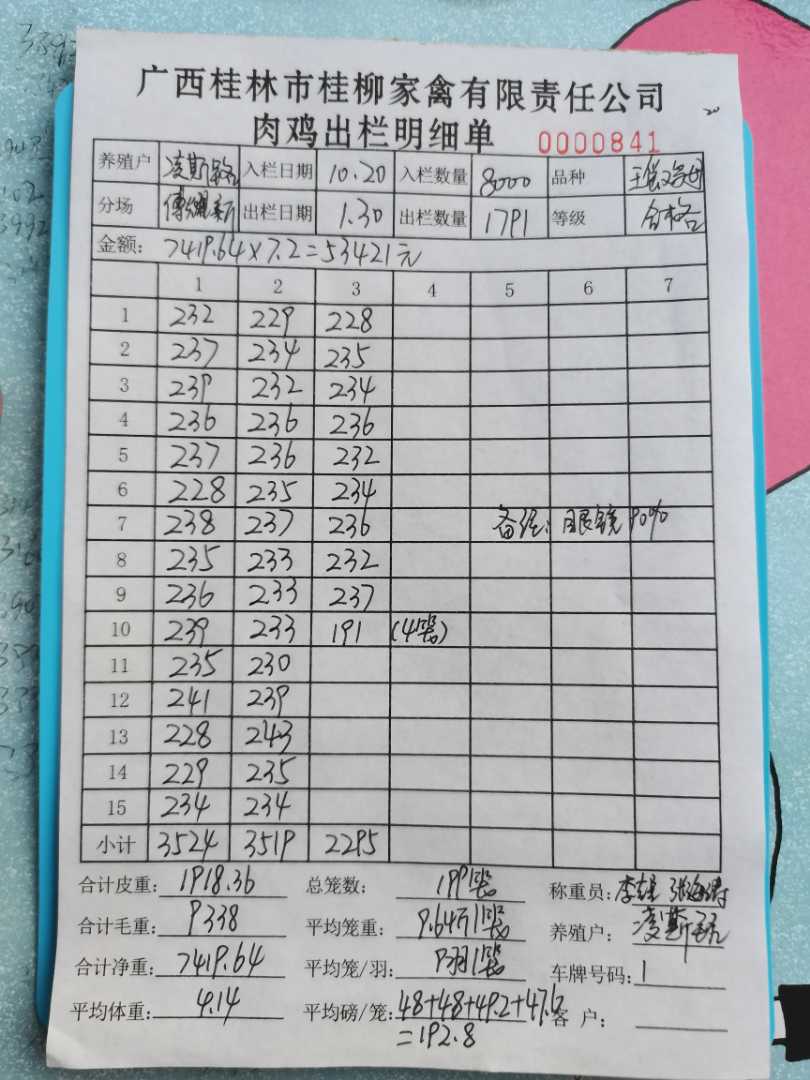 广西桂林市桂柳家禽有限责任公司
肉鸡出栏明细单 0000841
20
养殖户 凌斯铭 入栏日期 10.20 入栏数量 8000 品种
分场 傅继新 出栏日期 1.30 出栏数量 1791 等级 合格
金额: 7419.64×7.2=53421元
1 2 3 4 5 6 7
1 232 229 228
2 237 234 235
3 239 232 234
4 236 236 236
5 237 236 232
6 228 235 234
7 238 237 236 备注: 眼镜90%
8 235 233 232
9 236 233 237
10 239 233 191 (4笼)
11 235 230
12 241 239
13 228 243
14 229 235
15 234 234
小计 3524 3519 2295
合计皮重: 1918.36 总笼数: 199笼 称重员: 李
合计毛重: 9338 平均笼重: 9.64斤/笼 养殖户: 凌斯铭
合计净重: 7419.64 平均笼/羽: 9羽/笼 车牌号码: 1
平均体重: 4.14 平均磅/笼: 48+48+49.2+47.6 客户:
=192.8